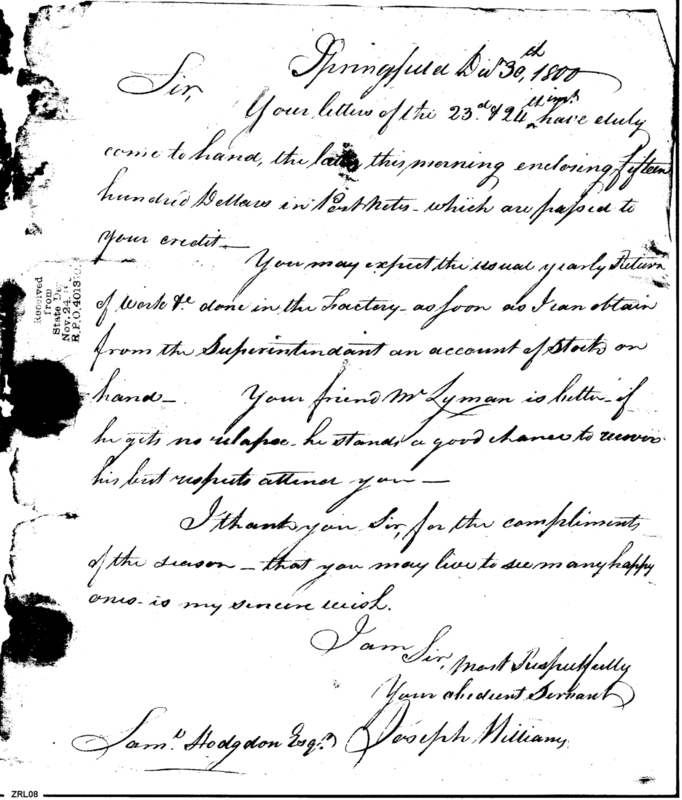 Springfield Decr 30th, 1800
Sir,
Your letters of the 23d & 24th inst. have duly
come to hand, the later this morning enclosing fifteen
hundred Dollars in Post Notes - which are passed to
your credit -
You may expect the usual yearly Return
of work &c done in the Factory - as soon as I can obtain
from the Superintendant an account of Stock on
hand - Your friend Mr Lyman is better - if
he gets no relapse - he stands a good chance to recover
his best respects attend you -
I thank you Sir, for the compliments
of the season - that you may live to see many happy
ones - is my sincere wish.
I am Sir, most Respectfully
Your obedient Servant
Joseph Williams
Saml Hodgdon Esqr
Received
from
State De
Nov. 24.
R.P.O. 4013
ZRL08